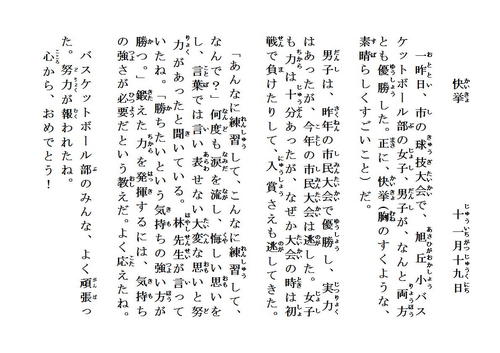 快挙　十一月十九日
一昨日、市の球技大会で、旭丘小バス
ケットボール部の女子、男子が、なんと両方
とも優勝した。正に、快挙(胸のすくような、
素晴らしくすごいこと)だ。
男子は、昨年の市民大会で優勝し、実力
はあったが、今年の市民大会は逃した。女子
も力は十分あったが、なぜか大会の時は初
戦で負けたりして、入賞さえも逃してきた。
「あんなに練習して、こんなに練習して、
なんで？」何度も涙を流し、悔しい思いを
し、言葉では言い表せない大変な思いと努
力があったと聞いている。林先生が言って
いたね。「勝ちたいという気持ちの強い方が
勝つ。」鍛えた力を発揮するには、気持ち
の強さが必要だという教えだ。よく応えたね。
バスケットボール部のみんな、よく頑張っ
た。努力が報われたね。
心から、おめでとう！